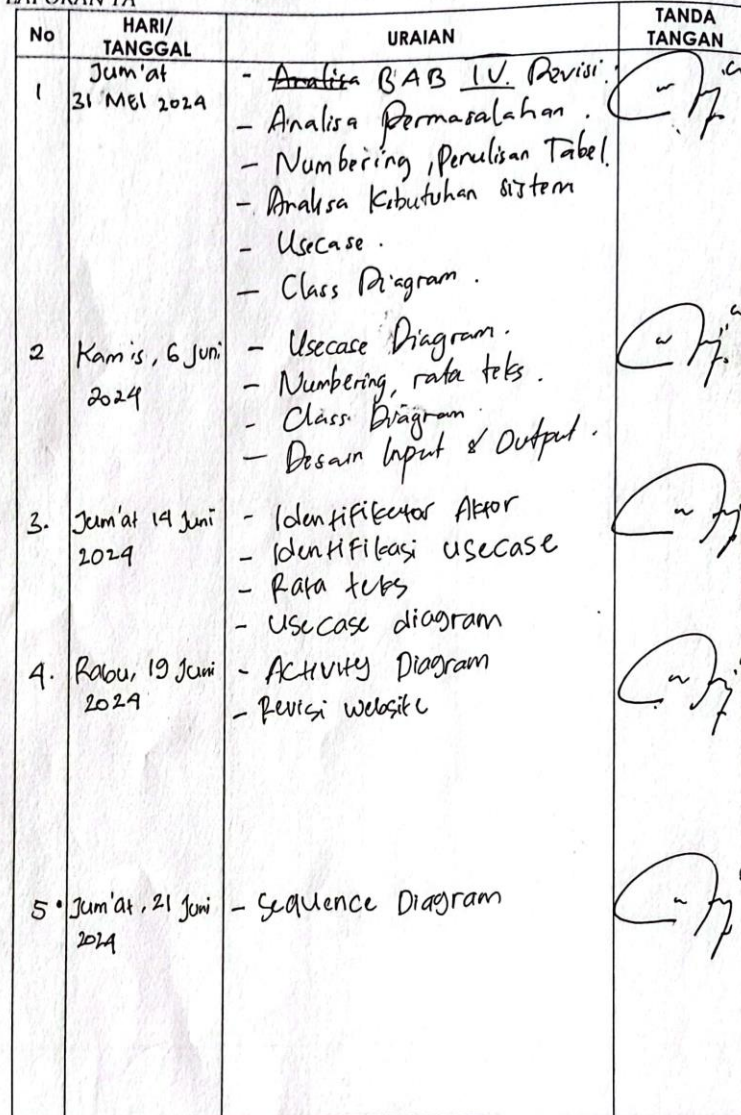 LAPORAN TA
No HARI/ TANGGAL URAIAN TANDA TANGAN
1 Jum'at 31 MEI 2024
- Analisa BAB IV. Revisi.
- Analisa Permasalahan.
- Numbering, Penulisan Tabel.
- Analisa Kebutuhan sistem
- Usecase.
- Class Diagram.
2 Kamis, 6 Juni 2024
- Usecase Diagram.
- Numbering, rata teks.
- Class Diagram.
- Desain Input & Output.
3. Jum'at 14 Juni 2024
- Aktor
- Identifikasi usecase
- Rata teks
- Usecase diagram
4. Rabu, 19 Juni 2024
- Activity Diagram
- Revisi website
5. Jum'at, 21 Juni 2024
- Sequence Diagram